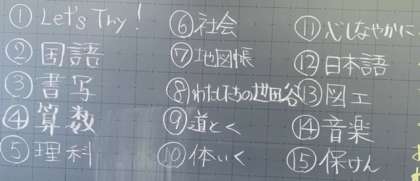 ① Let's Try!
② 国語
③ 書写
④ 算数
⑤ 理科
⑥ 社会
⑦ 地図帳
⑧ わたしたちの世田谷
⑨ 道とく
⑩ 体いく
⑪ 心しなやかに
⑫ 日本語
⑬ 図工
⑭ 音楽
⑮ 保けん